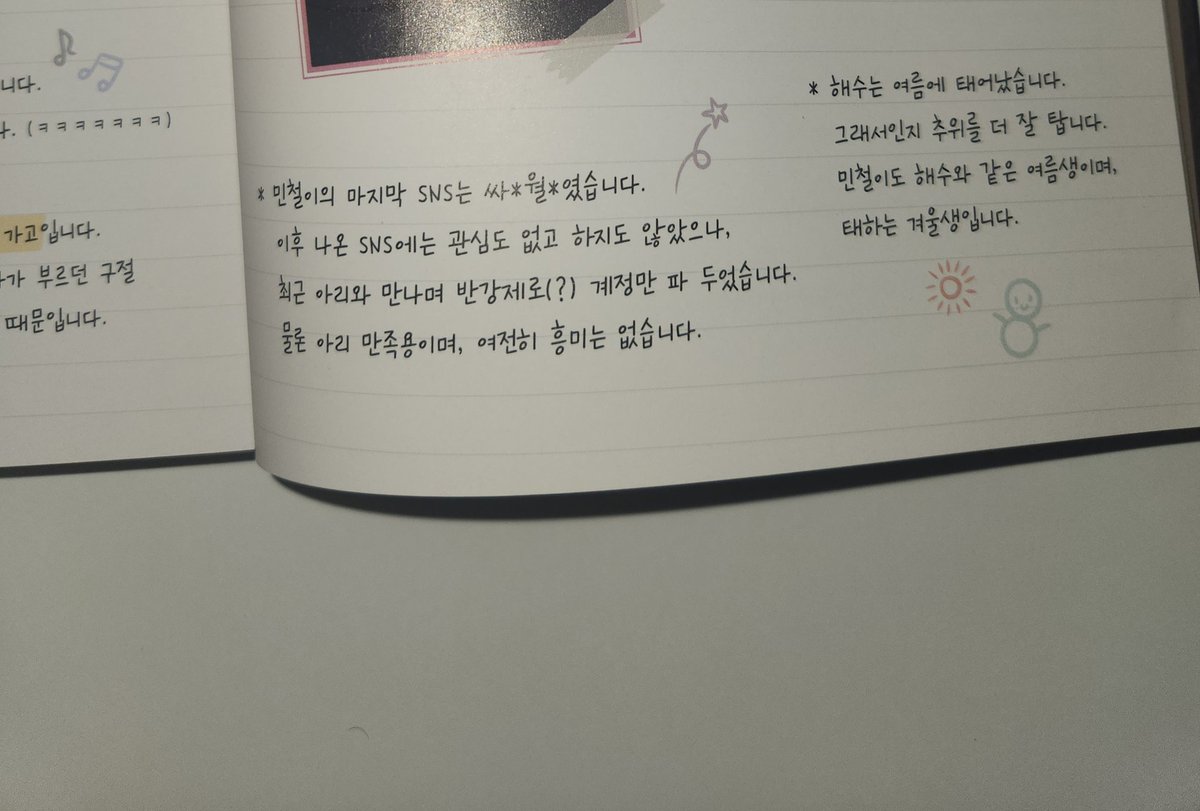 니다.
. (ㅋㅋㅋㅋㅋㅋㅋ)
가고입니다.
가 부르던 구절
때문입니다.
* 민철이의 마지막 SNS는 싸*월*였습니다.
이후 나온 SNS에는 관심도 없고 하지도 않았으나,
최근 아리와 만나며 반강제로(?) 계정만 파 두었습니다.
물론 아리 만족용이며, 여전히 흥미는 없습니다.
* 해수는 여름에 태어났습니다.
그래서인지 추위를 더 잘 탑니다.
민철이도 해수와 같은 여름생이며,
태하는 겨울생입니다.